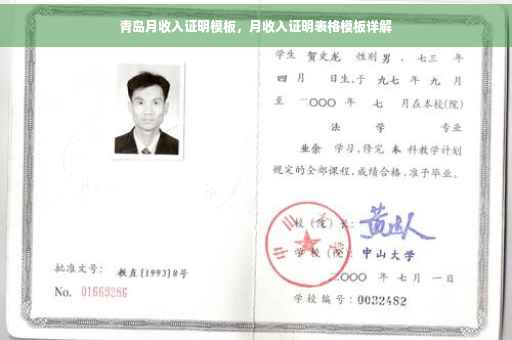 青岛月收入证明模板，月收入证明表格模板详解
学生 贺文龙 性别 男 、七三 年
四 月 日生,于 九七 年 九 月
至 二〇〇〇 年 七 月在本校(院)
法 学 专业
业余 学习,修完 本 科教学计划
规定的全部课程,成绩合格,准予毕业。
校(院)长:
学校(院): 中山大学
二〇〇〇 年 七 月 一 日
学校编号: 0032482
批准文号: 教直(1993)8号
No. 01669286